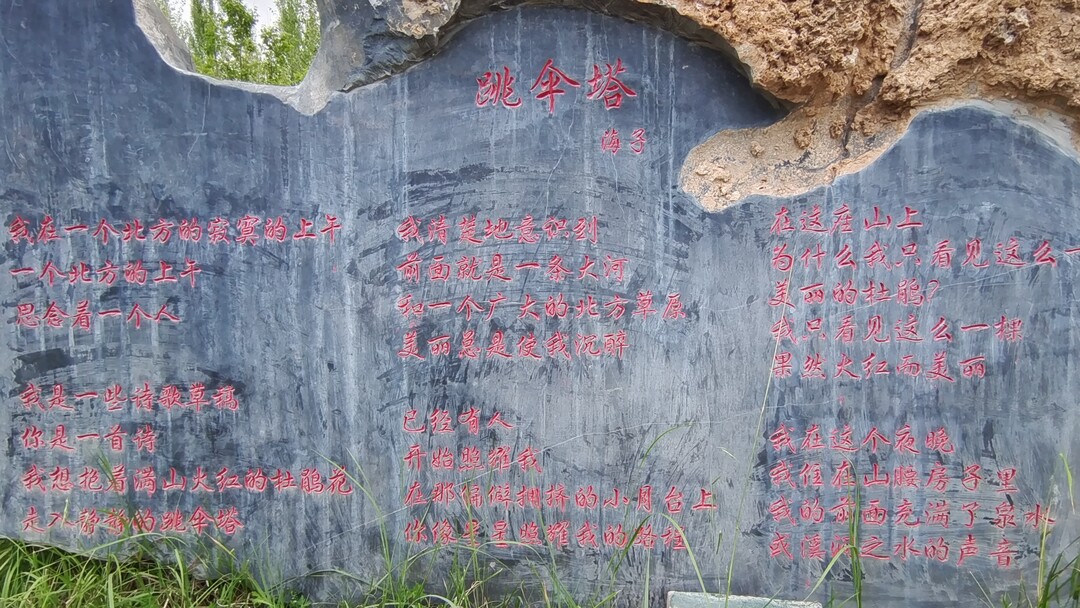 跳伞塔
海子
我在一个北方的寂寞的上午
一个北方的上午
思念着一个人
我是一些诗歌草稿
你是一首诗
我想抱着满山火红的杜鹃花
走入静静的跳伞塔
我清楚地意识到
前面就是一条大河
和一个广大的北方草原
美丽总是使我沉醉
已经有人
开始照耀我
在那偏僻拥挤的小月台上
你像星星照耀我的路程
在这座山上
为什么我只看见这么一
美丽的杜鹃？
我只看见这么一棵
果然火红而美丽
我在这个夜晚
我住在山腰房子里
我的前面充满了泉水
或溪涧之水的声音